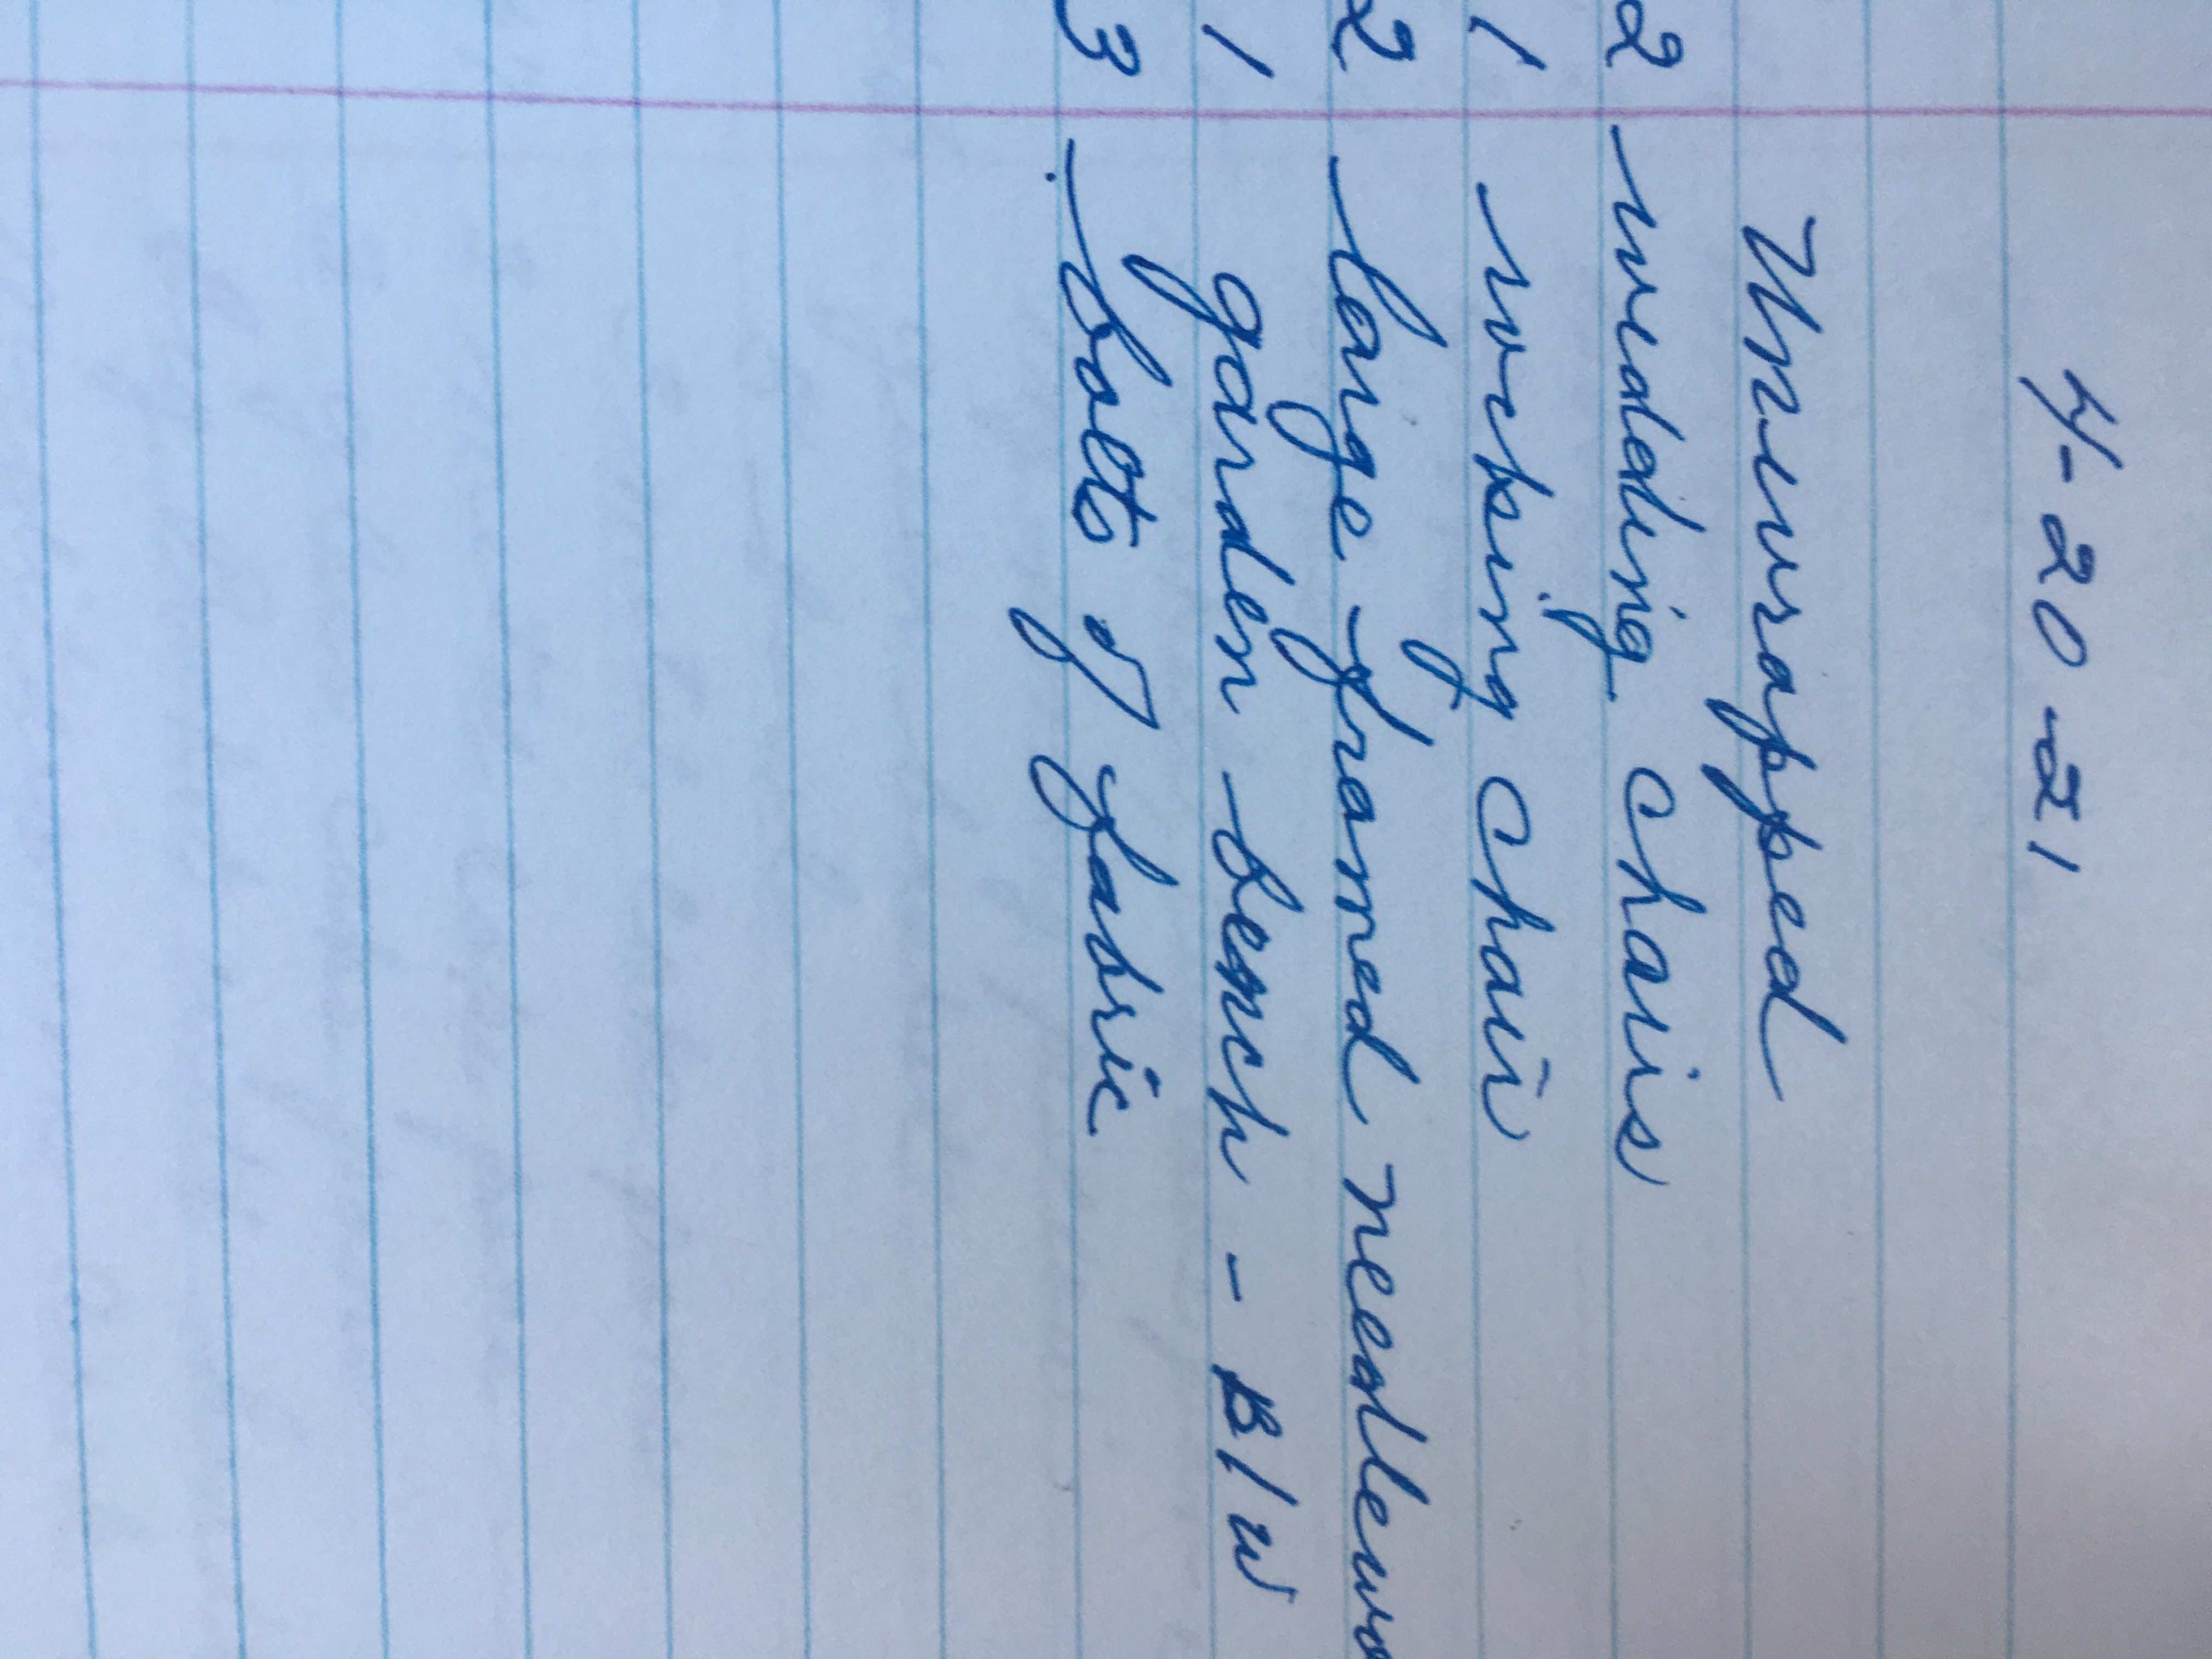 4-20-21
Unwrapped
2 wedding chairs
1 rocking chair
2 large framed needlewo
1 garden bench - B/W
3 bolts of fabric